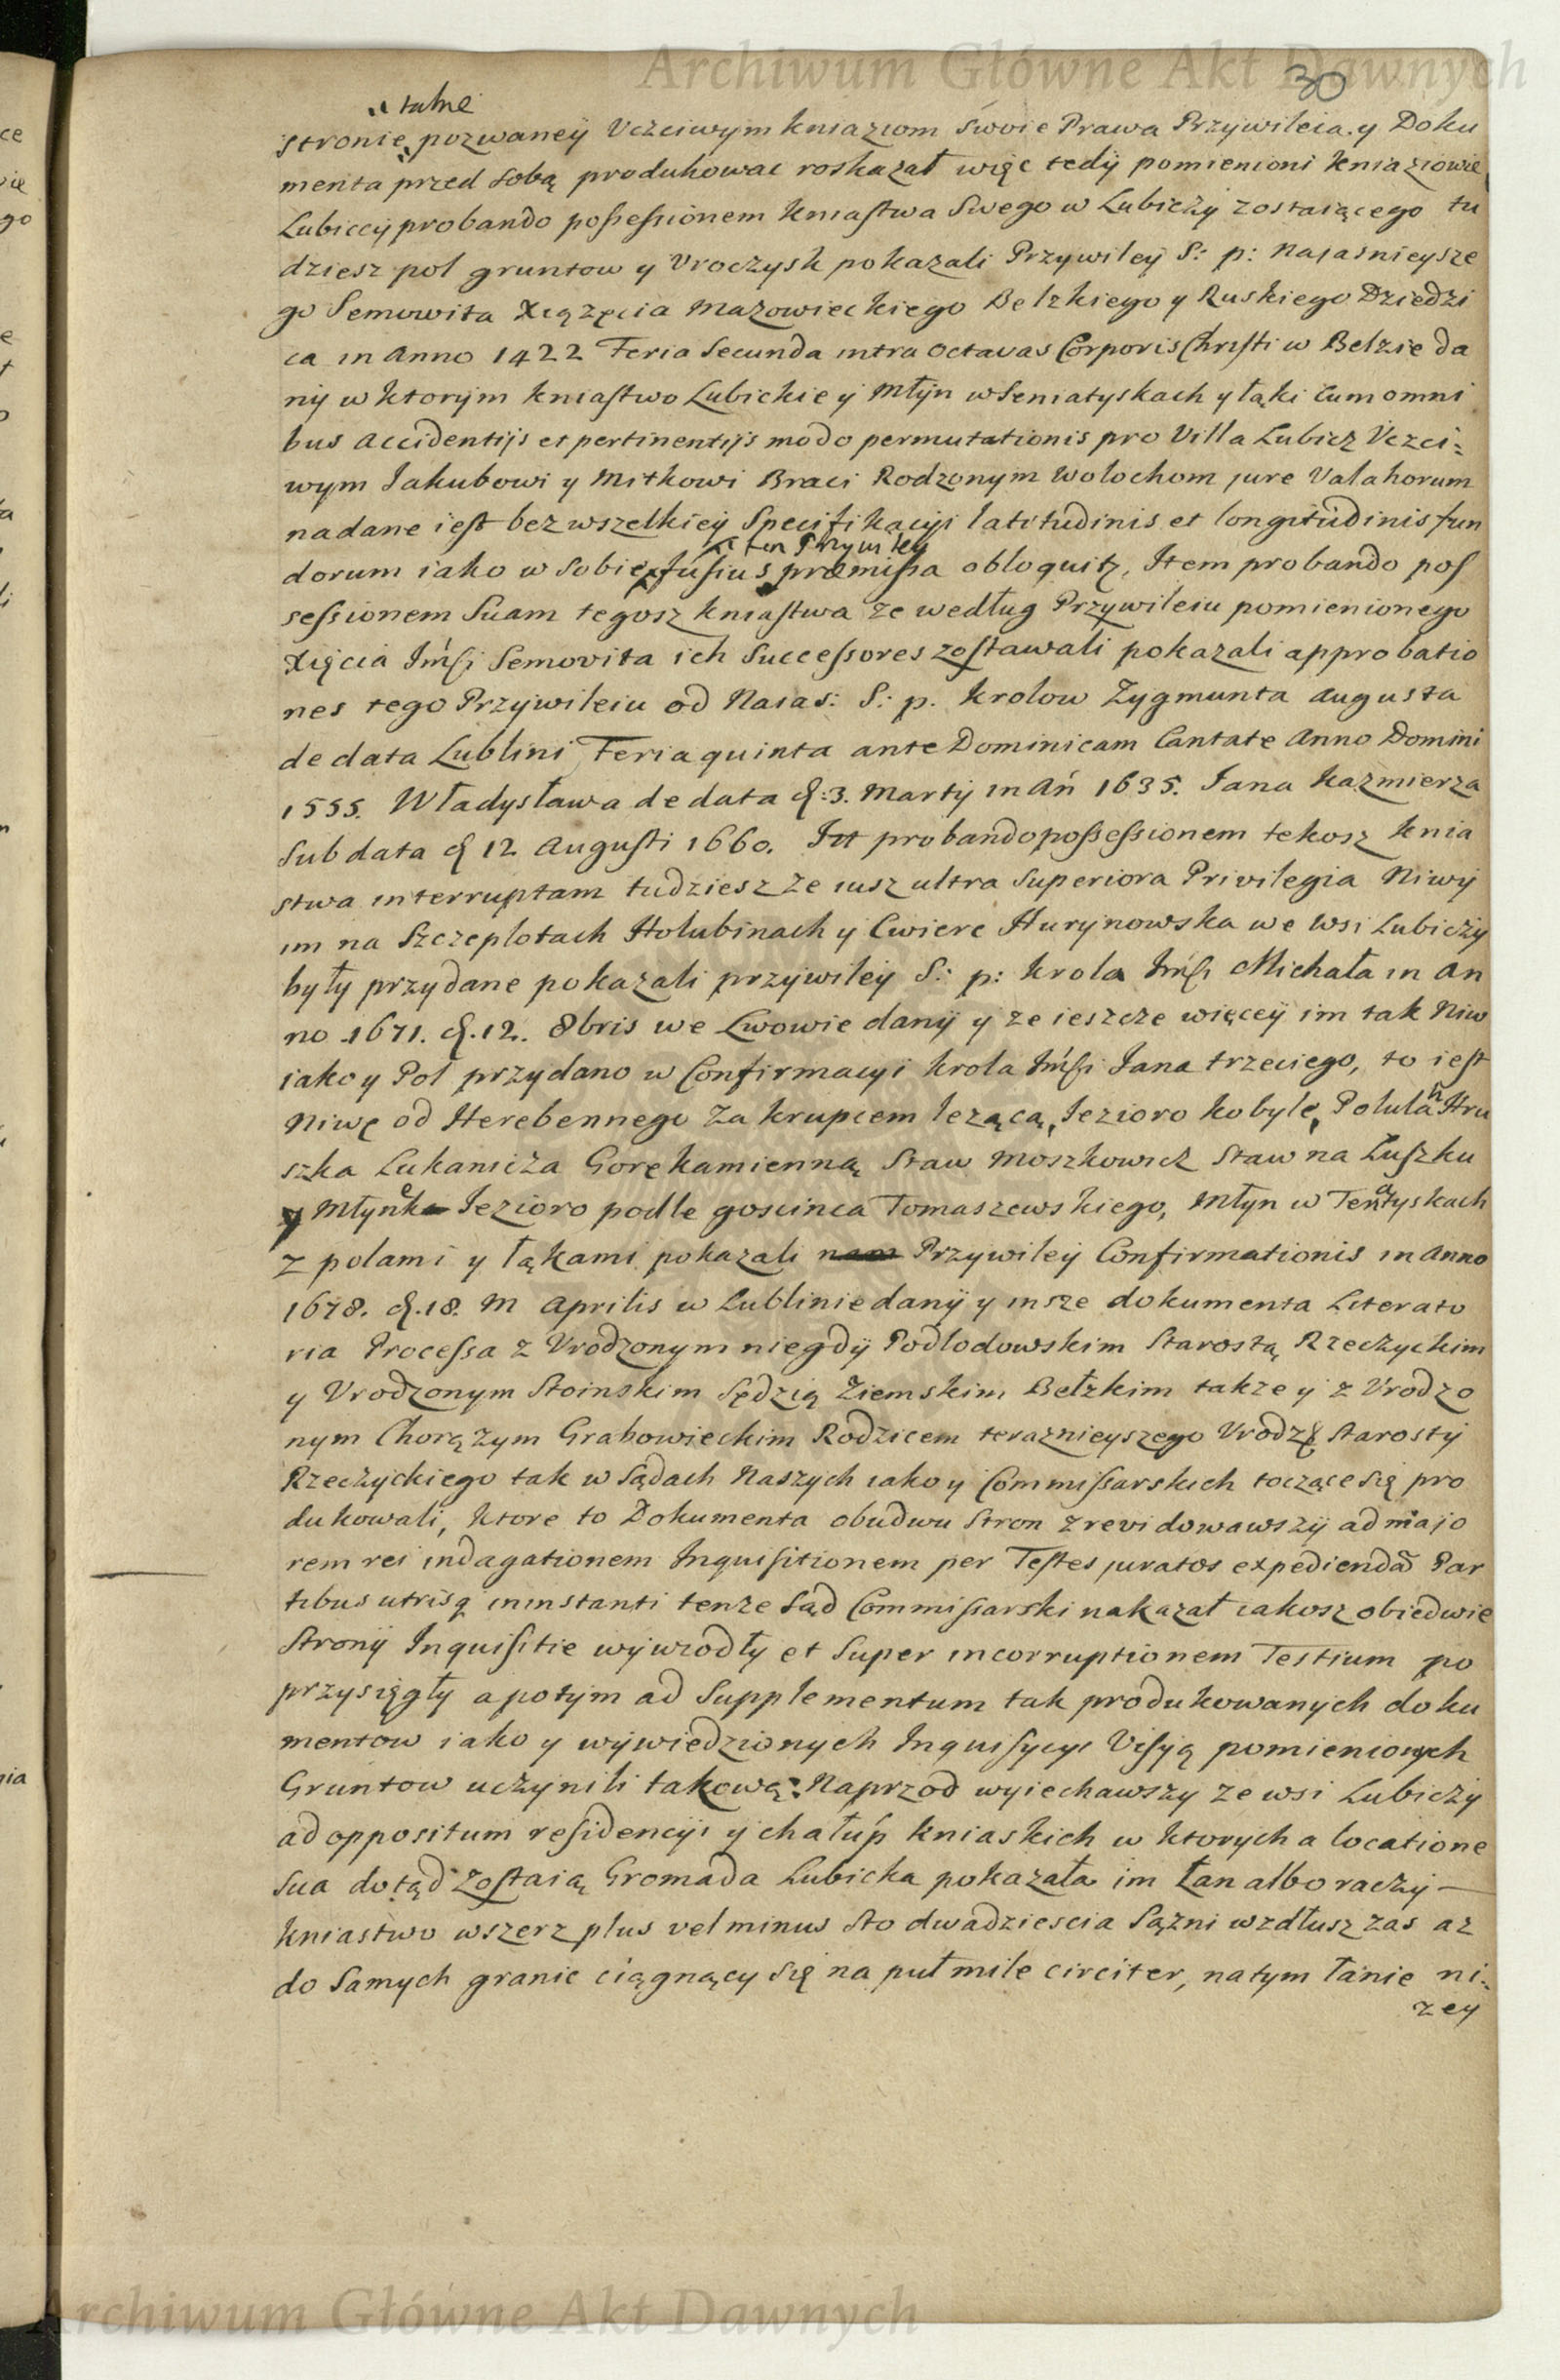 Archiwum Główne Akt Dawnych
30
stronie pozwaneÿ Uczciwym kniaziom swoie Prawa Przywileia y Doku
menta przed sobą produkowac roskazał więc tedÿ pomienioni kniaziowie
Lubiccÿ probando possessionem kniastwa Swego w Lubiczÿ zostaiącego tu
dziesz pol gruntow y Uroczysk pokazali Przywileÿ S: p: Naiasnieysze
go Semowita Xiązęcia Mazowieckiego Belzkiego y Ruskiego Dziedzi
ca in Anno 1422 Feria Secunda intra Octavas Corporis Christi w Belzie da
nÿ w ktorÿm kniastwo Lubickie ÿ Młÿn w Seniatyskach y łąki cum omni
bus accidentijs et pertinentijs modo permutationis pro Villa Lubicz Uczci-
wym Jakubowi y Mitkowi Braci Rodzonym Wolochom jure Valahorum
nadane iest bez wszelkieÿ Specifikacÿi latitudinis et longitudinis fun
ten Przywiley
dorum iako w sobie fusius præmissa obloquitz, Item probando pos
sessionem Suam tegosz kniastwa ze według Przywileiu pomienionego
Xięcia Jmsi Semovita ich Successores zostawali pokazali approbatio
nes tego Przÿwileiu od Naias: S: p. krolow Zygmunta Augusta
de data Lublini Feria quinta ante Dominicam Cantate Anno Domini
1555. Władysława de data d: 3. Martÿ in An 1635. Jana kazmierza
sub data d 12 Augusti 1660. It probando possessionem tekosz knia
stwa interruptam tudziesz ze iusz ultra superiora Privilegia Niwÿ
im na Szczeplotach Holubinach y Cwierc Hurynowska we wsi Lubiczÿ
były przydane pokazali przÿwileÿ S: p: krola Jmsi Michała in an
no 1671. d. 12. 8bris we Lwowie danÿ y ze ieszcze więceÿ im tak Niw
iako y Pol przydano w Confirmacyi krola Jmsi Jana trzeciego, to iest
Niwę od Herebennego za krupcem lezącą, Jezioro kobyle, Polulan Hru
szka Lukanicza Gorę kamienną Staw Moszkowicz Staw na Luszku
y Młynek Jezioro podle goscinca Tomaszewskiego, Młyn w Tenatyskach
z polami y łąkami pokazali Przywileÿ Confirmationis in Anno
1678. d. 18. M Aprilis w Lublinie danÿ y insze dokumenta Literato
ria Processa z Urodzonym niegdÿ Podlodowskim Starostą Rzeczyckim
y Urodzonym Stoinskim Sędzią Ziemskim Bełzkim takze ÿ z Urodzo
nym Chorązym Grabowieckim Rodzicem teraznieyszego Urodzo Starostÿ
Rzeczyckiego tak w Sądach Naszych iako y Commissarskich toczące się pro
dukowali, ktore to Dokumenta obudwu Stron zrevidowawszÿ ad majo
rem rei indagationem Inquisitionem per Testes juratos expediendã Par
tibus utrisq ininstanti tenze Sąd Commissarski nakazał iakosz obiedwie
Stronÿ Inquisitie wÿwiodły et super incorruptionem Testium po
przysięgły a potym ad Supplementum tak produkowanych doku
mentow iako y wÿwiedzionÿch Inquisycyi Visÿą pomienionych
Gruntow uczÿnili takową: Naprzod wyiechawszy ze wsi Lubiczÿ
ad oppositum residencÿi ÿ chałup kniaskich w ktorych a locatione
sua dotąd zostaią Gromada Lubicka pokazała im Łan albo raczÿ
kniastwo wszerz plus vel minus sto dwadziescia Sązni wzdłusz zas az
do Samych granic ciągnący się na puł mile circiter, natym łanie ni-
zey
Archiwum Główne Akt Dawnych